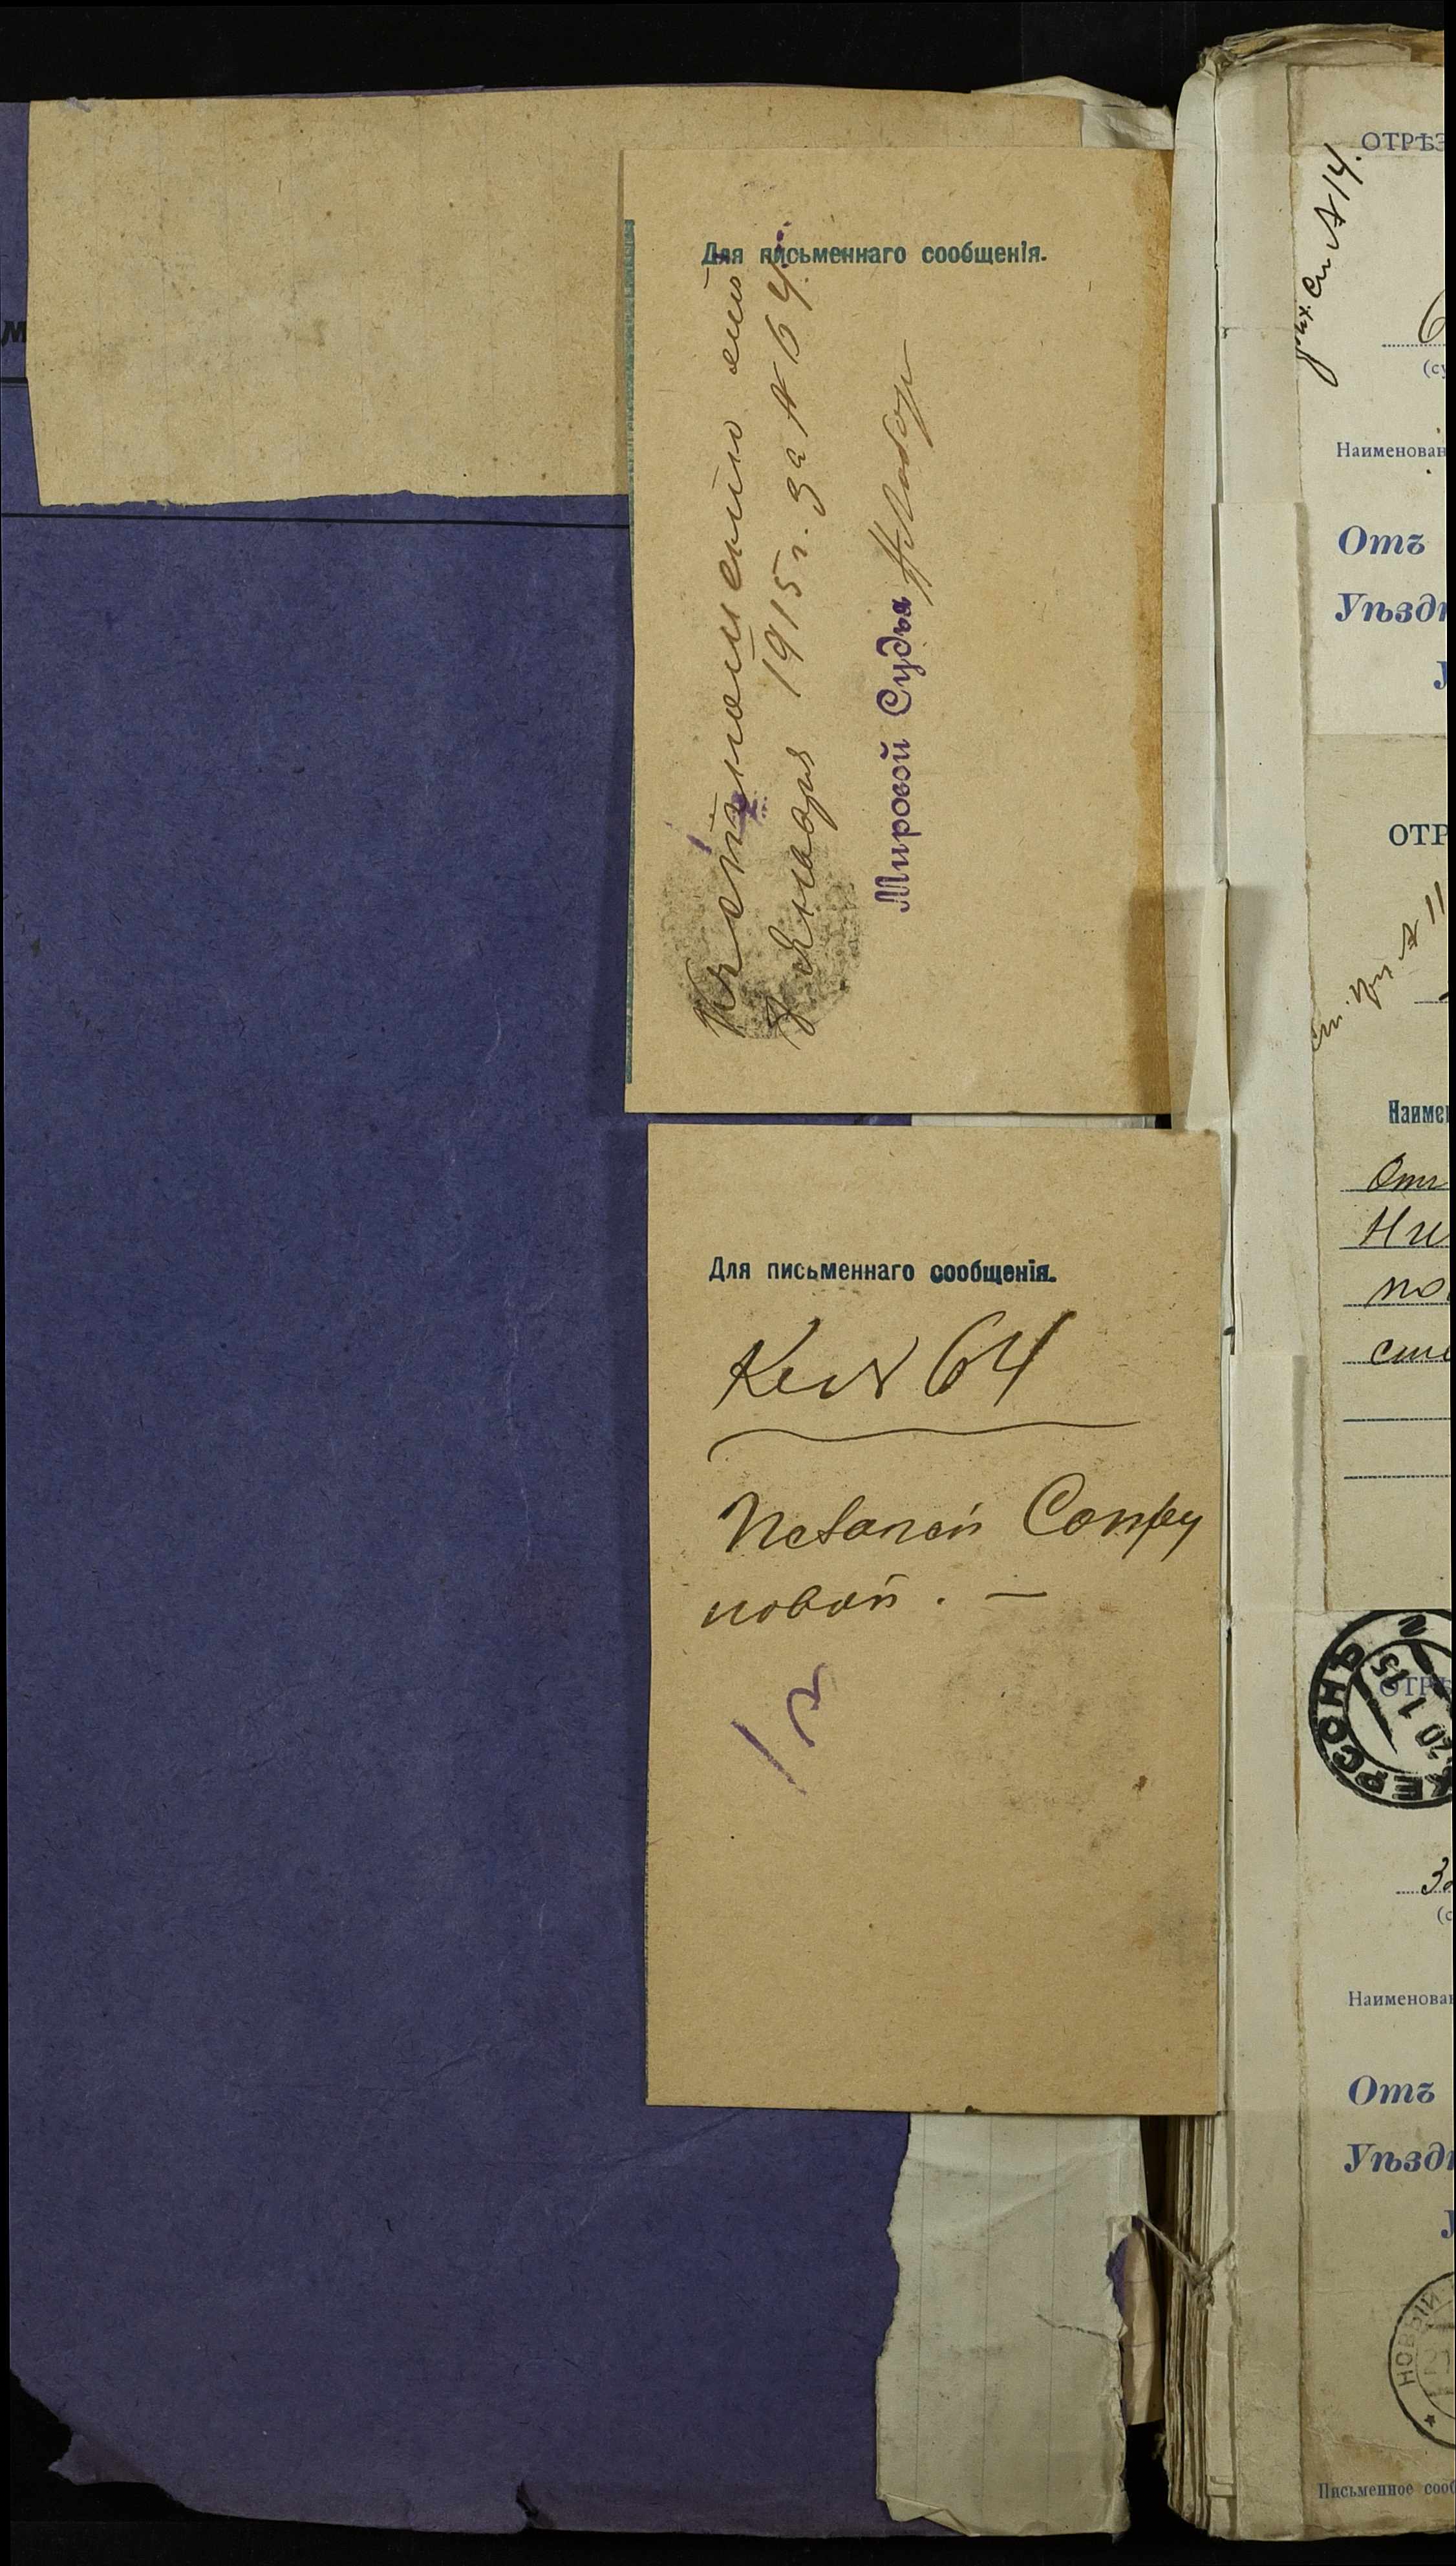 Для письменнаго сообщенія.
Къ отношенію отъ
8 Января 1915 г. за № 64.
Мировой Судья
Для письменнаго сообщенія.
Къ № 64
новой. —
ОТРѢЗ
№ 14.
Наименован
Отъ
Уѣздн
ОТР
№ 11
Наимен
Отъ
Ни
по
ХЕРСОНЪ
20 1 15
ОТРѢ
Наименован
Отъ
Уѣздн
НОВЫЙ
21
Письменное сооб